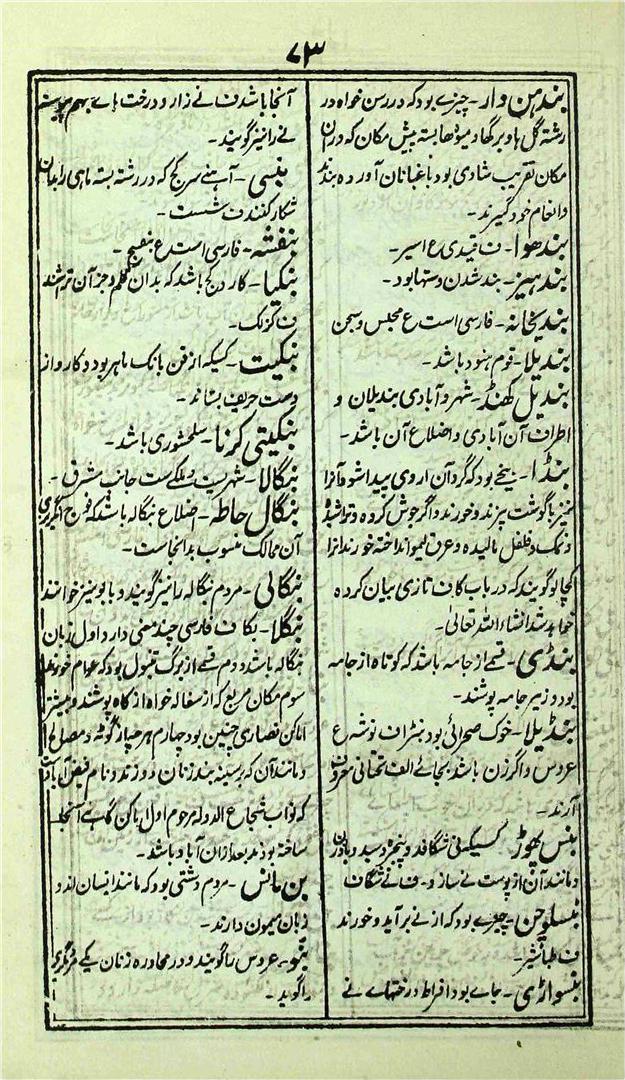 ۷۳
بندهن وار۔ چیزے بود کہ در رسن خواہ در
رشتہ گل ہا و برگہا و میوہا بستہ پیش مکان کہ در آن
مکان تقریب شادی بود باغبانان آوردہ بندند
و انعام خود گیرند۔
بندھوا۔ ف قیدی ع اسیر۔
بندہیز۔ بند شدن دستہا بود۔
بندیخانہ۔ فارسی است ع مجلس و سجن
بندیلا۔ قوم ہنود باشد۔
بندیل کھنڈ۔ شہر و آبادی بندیلان و
اطراف آن آبادی و اضلاع آن باشد۔
بنڈا۔ بیخے بود کہ گرد آن اروی پیدا شود آنرا
نیز با گوشت پزند و خورند و اگر جوش کردہ و تراشیدہ
و نمک و فلفل مالیدہ و عرق لیمو انداختہ خورند آنرا
کچالو گویند کہ در باب کاف تازی بیان کردہ
خواہد شد انشاء اللہ تعالیٰ۔
بنڈی۔ قسمے از جامہ باشد کہ کوتاہ از جامہ
بود و زیر جامہ پوشند۔
بنڈیلا۔ خوک صحرائی بود بنڑا ف نوشہ ع
عروس و اگر زن باشد بجائے الف تحتانی معروف
آرند۔
بنس پھوڑ کسیکہ نی شگافد و پنجرہ و سبد و بادزن
و مانند آن از پوست نے سازد۔ ف نے شگاف
بنسلوچن۔ چیزے بود کہ از نے برآید و خورند
ف طباشیر۔
بنسواڑی۔ جاے بود افراط درختہاے نے
آنجا باشد ف نے زار و درخت ہاے بہم پیوستہ
نے را نیز گویند۔
بنسی۔ آہنے سر کج کہ در رشتہ بستہ ماہی را بدان
شکار کنند ف شست۔
بنفشہ۔ فارسی است ع بنفسج۔
بنکیا۔ کارد کج باشد کہ بدان قلم و جز آن تراشند
ف گزلک۔
بنکیت۔ کسیکہ از فن بانک ماہر بود و کارد از
دست حریف بستاند۔
بنکیتی کرنا۔ سلحشوری باشد۔
بنگالا۔ شہریست و ملکے ست جانب مشرق۔
بنگال حاطہ۔ اضلاع بنگالہ باشد کہ فوج انگریزی
آن ممالک منسوب بدانجاست۔
بنگالی۔ مردم بنگالہ را نیز گویند و بابو نیز خوانند
بنگلا۔ بکاف فارسی چند معنی دارد اول زبان
بنگالہ باشد دوم قسمے از برگ تنبول بود کہ عوام خورند
سوم مکان مربع کہ از سفالہ خواہ از کاہ پوشند و بیشتر
اماکن نصاری چنین بود چہارم ہر چہ از گوٹہ و مصالح
و مانند آن کہ بسینہ بند زنان دوزند و نام فیض آباد است
کہ نواب شجاع الدولہ مرحوم اول اماکن گاہے آنجا
ساختہ بودند بعد ازان آباد باشد۔
بن مانس۔ مردم دشتی بود کہ مانند انسان اند و
زبان میمون دارند۔
بنو۔ عروس را گویند و در محاورہ زنان یکے مر دیگرے
را گوید۔